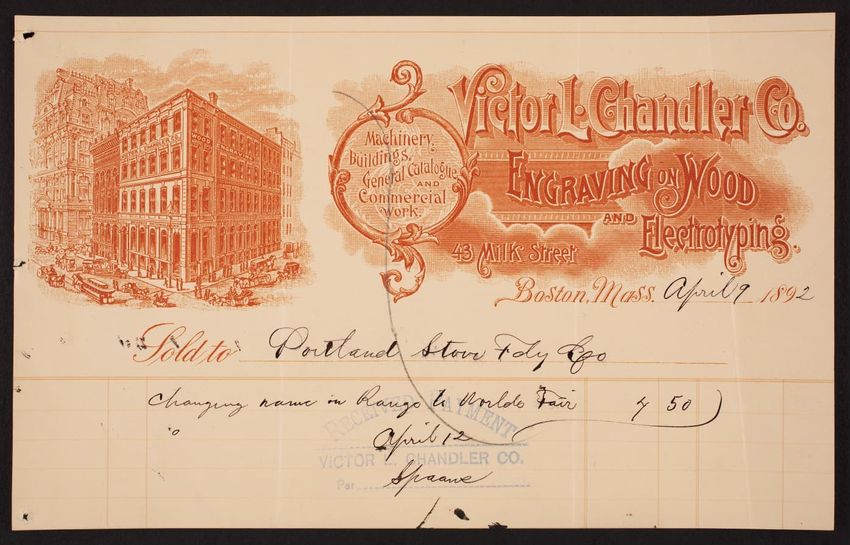 Victor L. Chandler Co.
Machinery,
Buildings,
General Catalogue
AND
Commercial
Work.
ENGRAVING ON WOOD
AND
Electrotyping.
43 Milk Street
Boston, Mass. April 9 1892
Sold to Portland Stove Fdy Co
Changing name in Range to Worlds Fair 50
RECEIVED PAYMENT
April 12
VICTOR L. CHANDLER CO.
Per